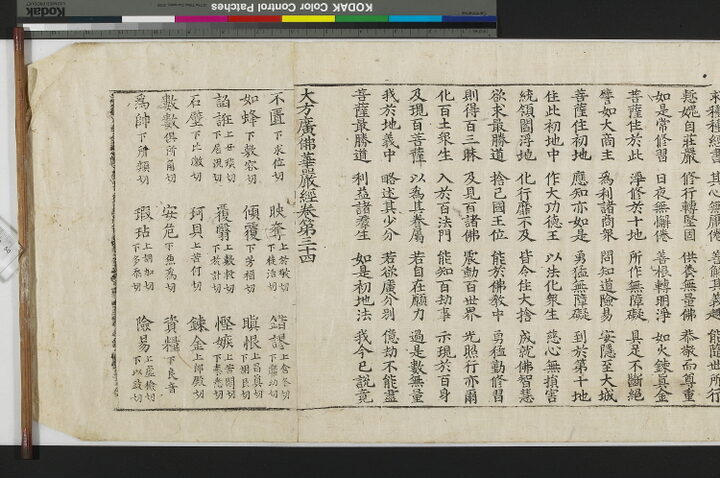 KODAK Color Control Patches
Kodak
其心無厭倦 善解其義趣 能隨世所行
慙愧自莊嚴 修行轉堅固 供養無量佛 恭敬而尊重
如是常修習 日夜無懈倦 善根轉明淨 如火鍊真金
菩薩住於此 淨修於十地 所作無障礙 具足不斷絕
譬如大商主 為利諸商眾 問知道險易 安隱至大城
菩薩住初地 應知亦如是 勇猛無障礙 到於第十地
住此初地中 作大功德王 以法化眾生 慈心無損害
統領閻浮地 化行靡不及 皆令住大捨 成就佛智慧
欲求最勝道 捨己國王位 能於佛教中 勇猛勤修習
則得百三昧 及見百諸佛 震動百世界 光照行亦爾
化百土眾生 入於百法門 能知百劫事 示現於百身
及現百菩薩 以為其眷屬 若自在願力 過是數無量
我於地義中 略述其少分 若欲廣分別 億劫不能盡
菩薩最勝道 利益諸羣生 如是初地法 我今已說竟
大方廣佛華嚴經卷第三十四
不匱 下求位切 映奪 上於敬切 下徒活切 錯謬 上倉各切 下靡幼切
如蜂 下敷容切 傾覆 下芳福切 瞋恨 上昌真切 下胡艮切
諂誑 上丑琰切 下居況切 覆翳 上敷救切 下於計切 慳嫉 上苦閑切 下秦悉切
石壁 下北激切 珂貝 上苦何切 鍊金 上郎殿切
數數 俱所角切 安危 下魚為切 資糧 下良音
為帥 下所類切 瑕玷 上胡加切 下多忝切 險易 上虛檢切 下以豉切